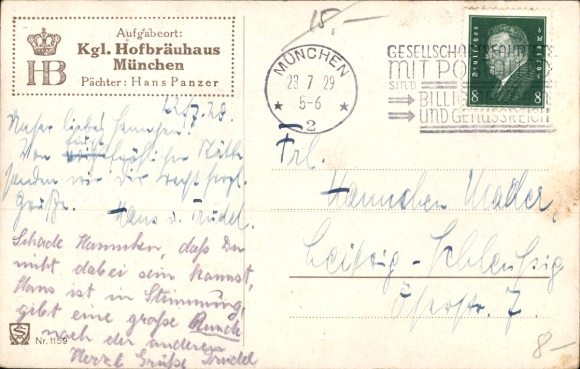 15.-
Aufgabeort:
Kgl. Hofbräuhaus
München
Pächter: Hans Panzer
HB
MÜNCHEN
23 7 29
5-6
2
GESELLSCHAFTSFAHRTEN
MIT POSTAUTO
SIND
BILLIG
UND GENUSSREICH
Deutsches Reich
8 8
22/7.29.
Unser liebes Hannchen!
Von
senden wir Dir recht herzl.
Grüße. Hans u. Trudel.
Schade Hannchen, daß Du
nicht dabei sein kannst,
Hans ist in Stimmung,
gibt eine große Runde
nach der anderen
Herzl Grüße Trudel
Frl.
Hannchen
Leipzig-Schleußig
7.
Nr. 1159
8-